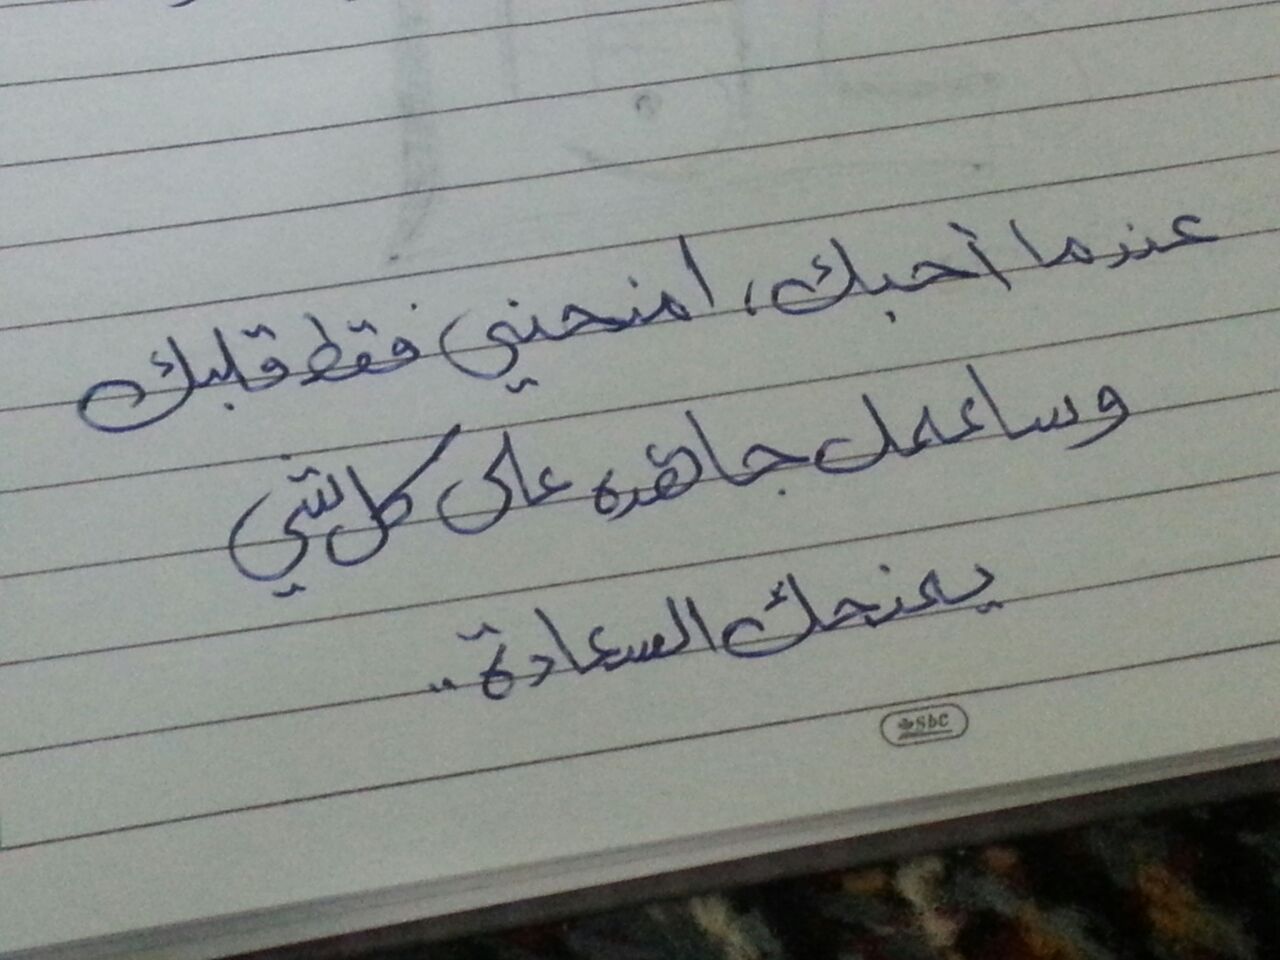 عندما أحبك، امنحني فقط قلبك
وساعمل جاهده على كل شي
يمنحك السعادة..
sbc